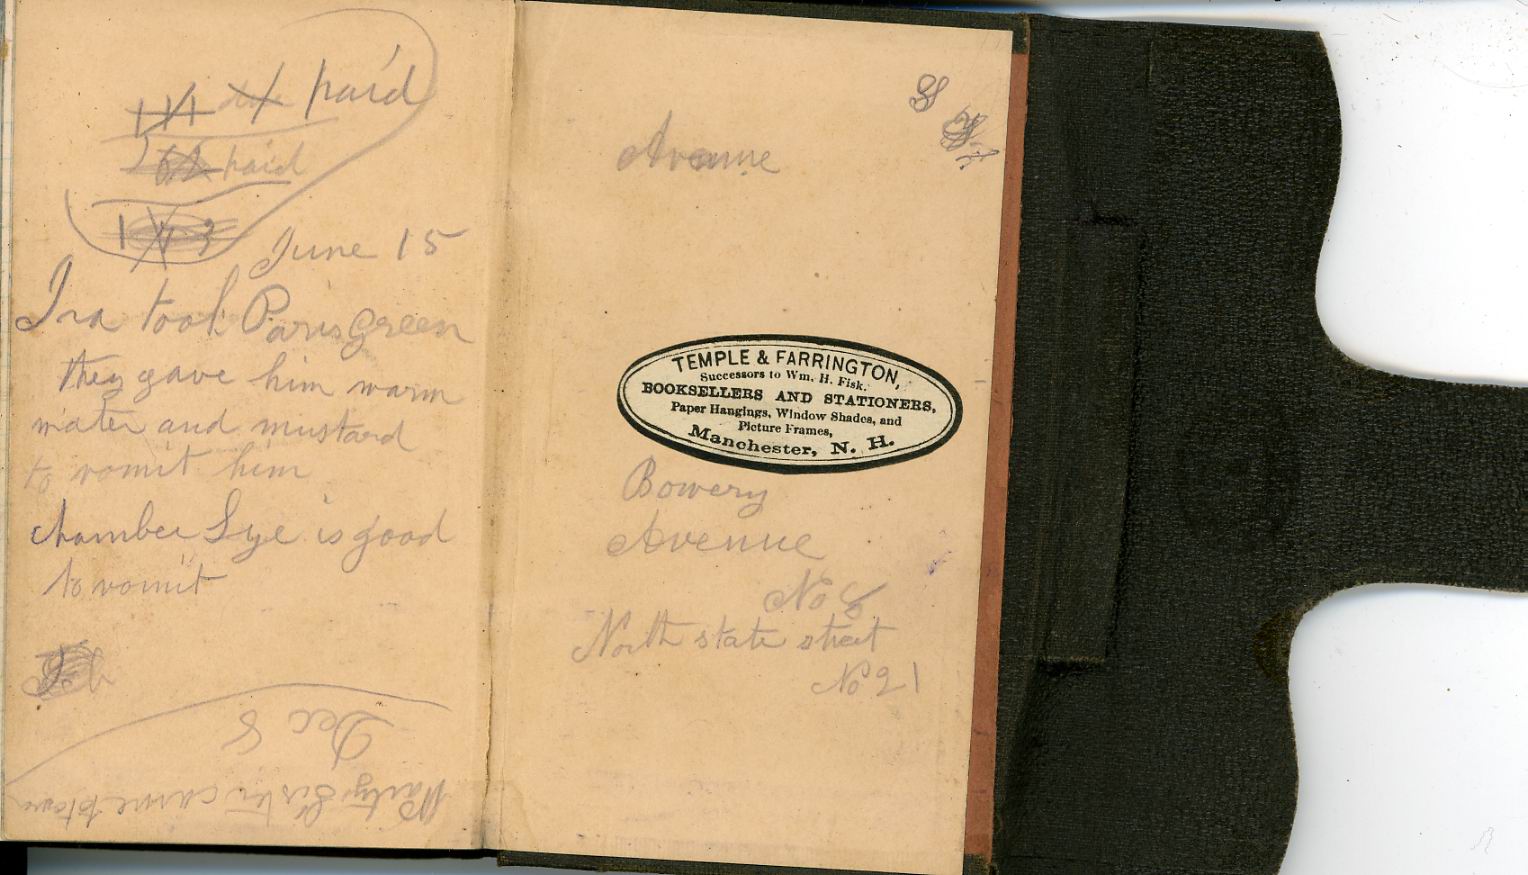 114 paid
paid
143
June 15
Ira took Paris green
they gave him warm
water and mustard
to vomit him
chamber Lye is good
to vomit
Dec 8
Sister came to
Avenue
TEMPLE & FARRINGTON,
Successors to Wm. H. Fisk.
BOOKSELLERS AND STATIONERS,
Paper Hangings, Window Shades, and
Picture Frames,
Manchester, N. H.
Bowery
Avenue
No 8
North state street
No 21